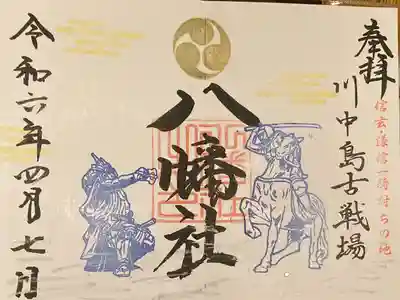 奉拝
川中島古戦場
信玄・謙信一騎討ちの地
八幡社
令和六年四月七日